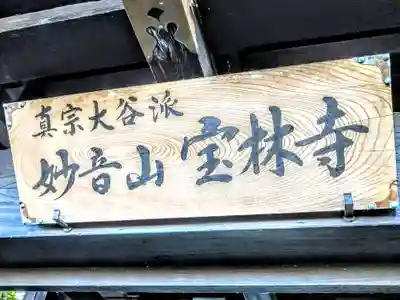 真宗大谷派
妙音山宝林寺